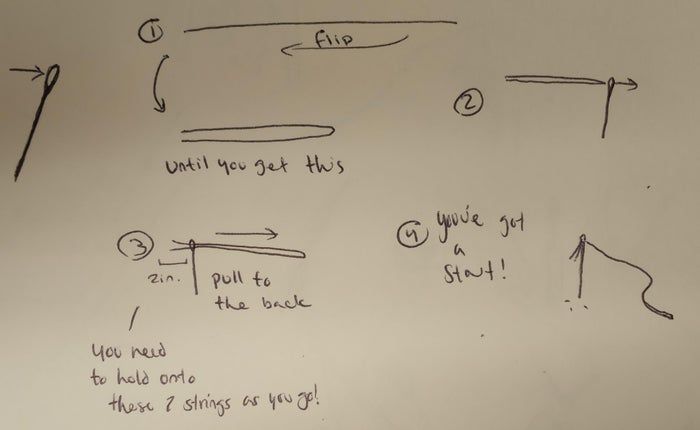 ① flip
until you get this
②
③
2in. pull to
the back
you need
to hold onto
these 2 strings as you go!
④ you've got
a
start!